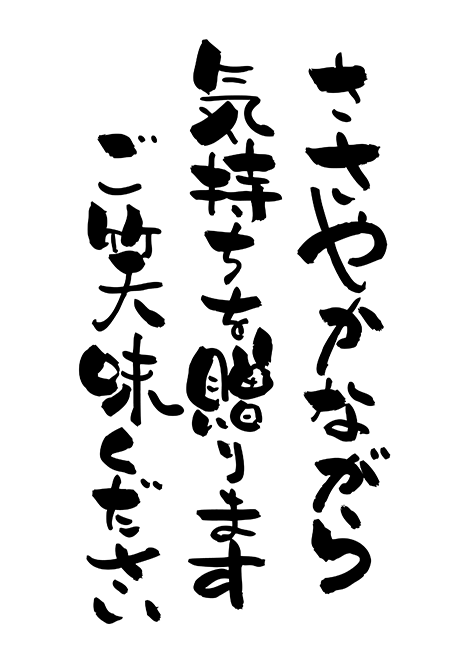 ささやかながら
気持ちを贈ります
ご笑味ください